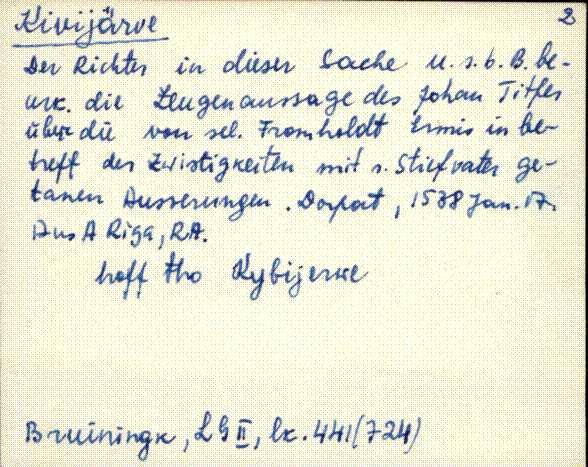 Kivijärve 2
Der Richter in dieser Sache u. s. b. B. be-
urk. die Zeugenaussage des Johan Titfer
über die von sel. Fromholdt Ermis in be-
treff der Zwistigkeiten mit s. Stiefvater ge-
tanen Äusserungen. Dorpat, 1538 Jan. 17.
Aus A Riga, RA.
hoff tho Kybijerwe
Bruiningk, LG II, lk. 441 (724)